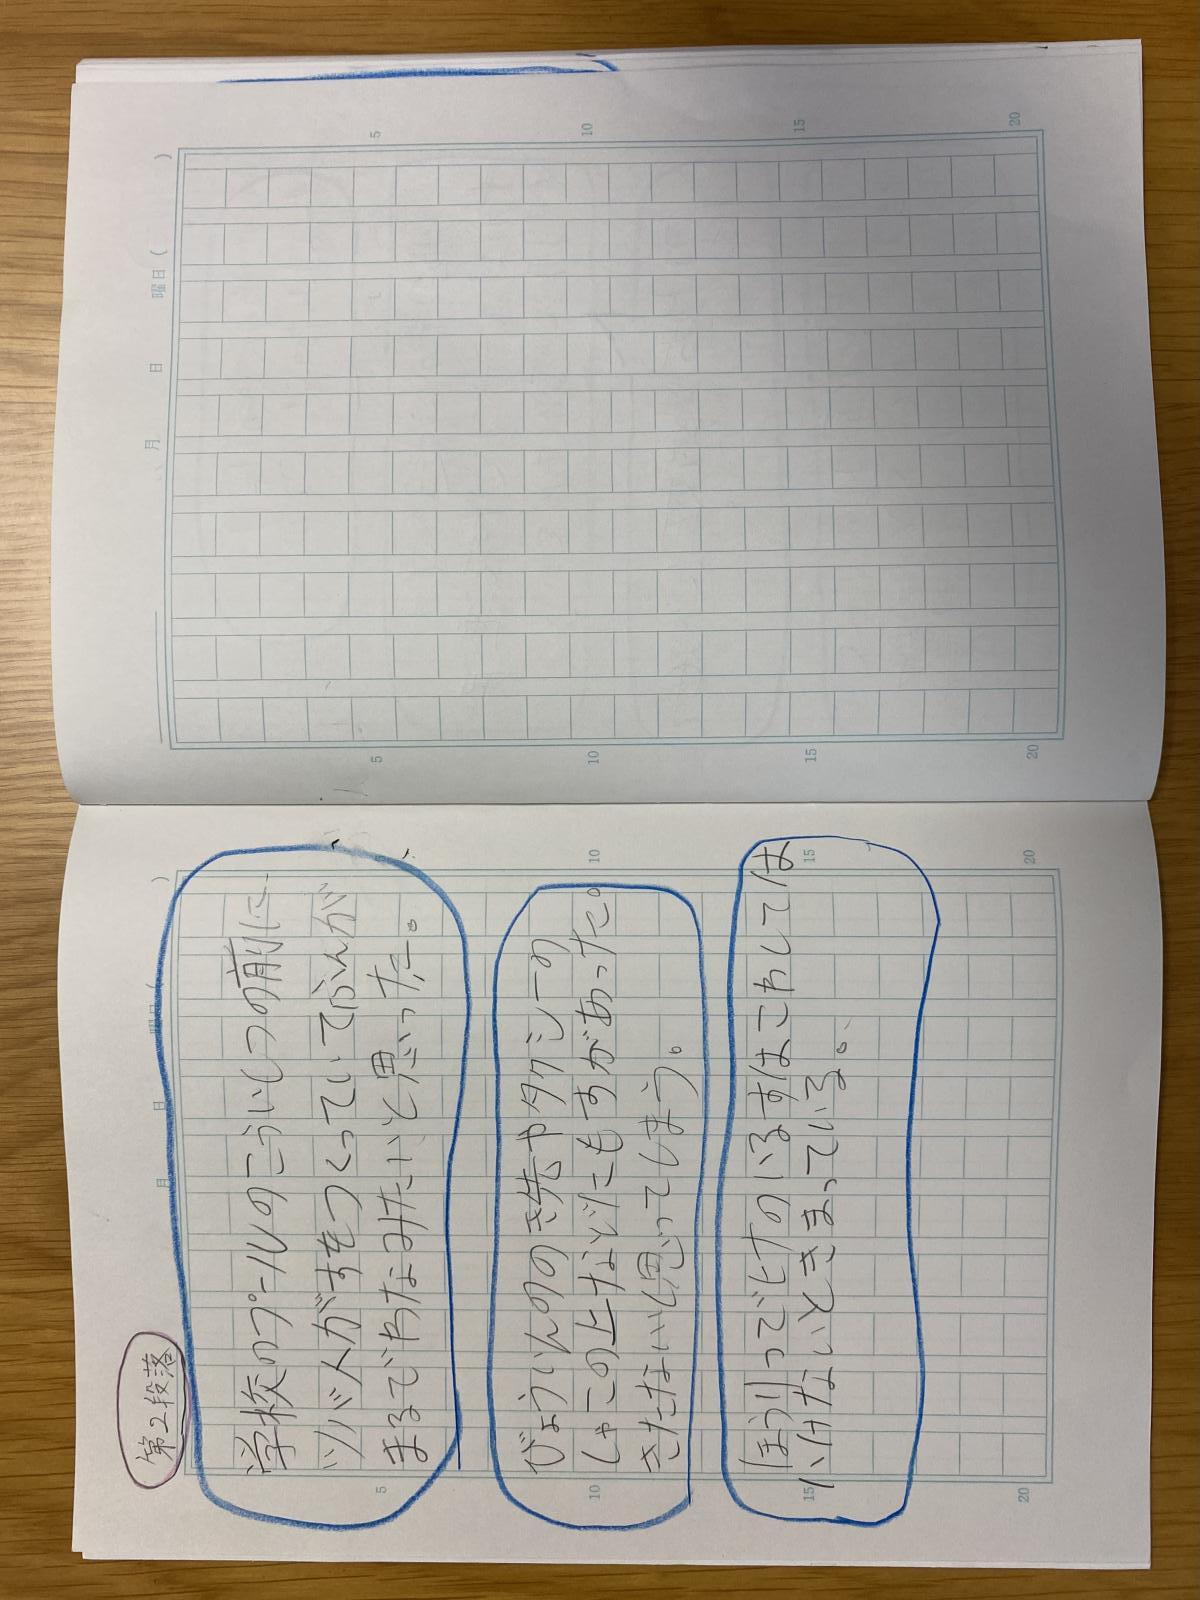 第2段落
学校のプールのこういしつの前に、
ツバメがすをつくっていてふんが
まるでわなみたいと思った。
びょういんのき先やタクシーの
しゃこの上などにもすがあった。
きたないと思ってしまう。
ほうりつでヒナのいるすはこわしては
いけないときまっている。
月 日 曜日( )
5 10 15 20
5 10 15 20
月 日 曜日( )
5 10 15 20
5 10 15 20